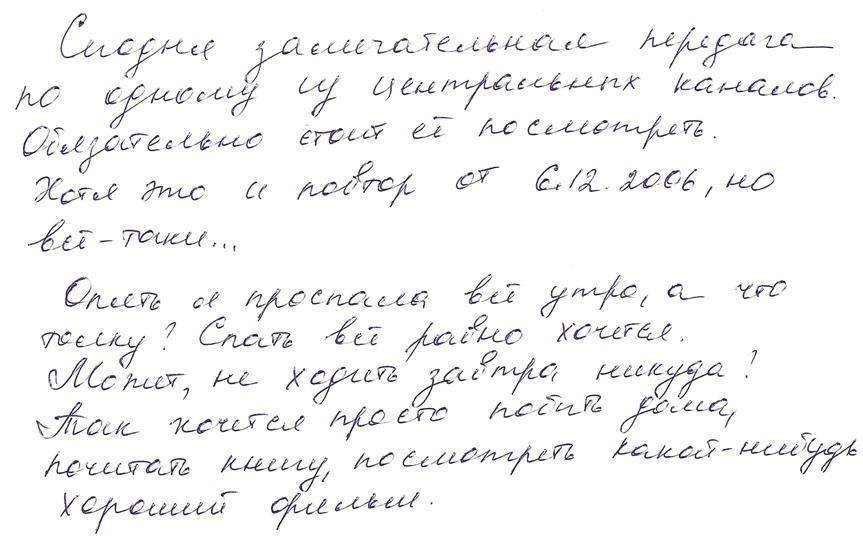 Сегодня замечательная передача
по одному из центральных каналов.
Обязательно стоит её посмотреть.
Хотя это и повтор от 6.12.2006, но
всё-таки...
Опять я проспала всё утро, а что
толку? Спать всё равно хочется.
Может, не ходить завтра никуда?
Так хочется просто побыть дома,
почитать книгу, посмотреть какой-нибудь
хороший фильм.